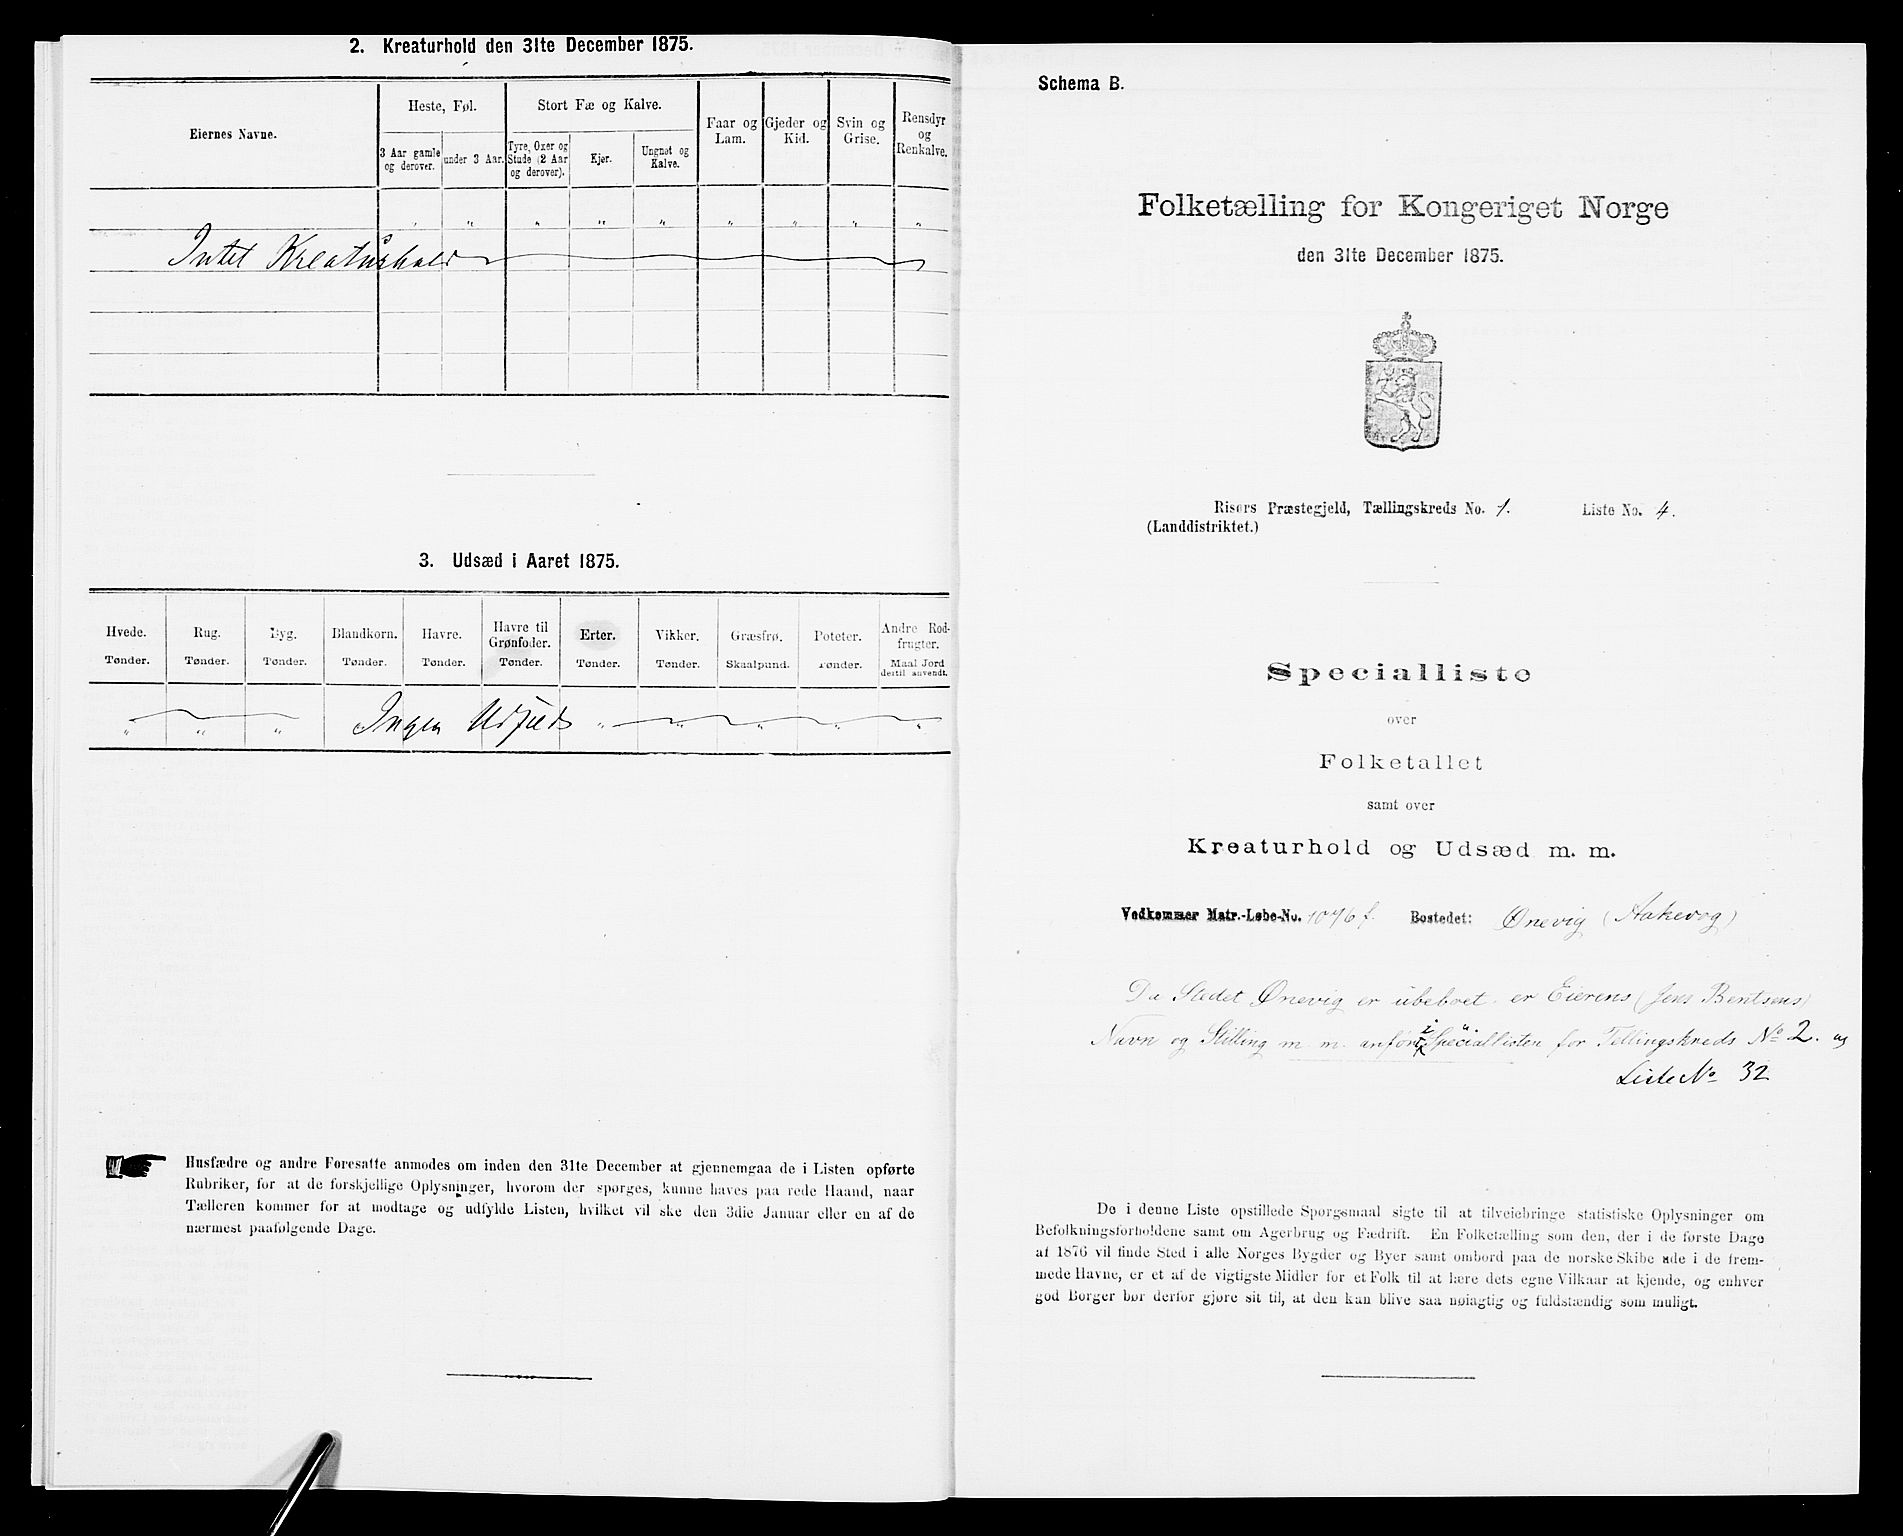 2. Kreaturhold den 31te December 1875.
Eiernes Navne.
Heste, Føl.
Stort Fæ og Kalve.
Faar og
Lam.
Gjeder og
Kid.
Svin og
Grise.
Rensdyr
og
Renkalve.
3 Aar gamle
og derover.
under 3 Aar.
Tyre, Oxer og
Stude (2 Aar
og derover).
Kjør.
Ungnøt og
Kalve.
" " " " " " " " "
Intet Kreaturhold
3. Udsæd i Aaret 1875.
Hvede.
Tønder.
Rug.
Tønder.
Byg.
Tønder.
Blandkorn.
Tønder.
Havre.
Tønder.
Havre til
Grønfoder.
Tønder.
Erter.
Tønder.
Vikker.
Tønder.
Græsfrø.
Skaalpund.
Poteter.
Tønder.
Andre Rod-
frugter.
Maal Jord
dertil anvendt.
" " " Ingen Udsæd " " " " "
Husfædre og andre Foresatte anmodes om inden den 31te December at gjennemgaa de i Listen opførte
Rubriker, for at de forskjellige Oplysninger, hvorom der spørges, kunne haves paa rede Haand, naar
Tælleren kommer for at modtage og udfylde Listen, hvilket vil ske den 3die Januar eller en af de
nærmest paafølgende Dage.
Schema B.
Folketælling for Kongeriget Norge
den 31te December 1875.
Risørs Præstegjeld, Tællingskreds No. 1. Liste No. 4.
(Landdistriktet.)
Specialliste
over
Folketallet
samt over
Kreaturhold og Udsæd m. m.
Vedkommer Matr.-Løbe-No. 1076 f. Bostedet: Ønevig (Aakevog)
Da Stedet Ønevig er ubeboet er Eierens (Jens Bentsens)
Navn og Stilling m. m. anført i Speciallisten for Tellingskreds No 2. og
Liste No 32
De i denne Liste opstillede Spørgsmaal sigte til at tilveiebringe statistiske Oplysninger om
Befolkningsforholdene samt om Agerbrug og Fædrift. En Folketælling som den, der i de første Dage
af 1876 vil finde Sted i alle Norges Bygder og Byer samt ombord paa de norske Skibe ude i de frem-
mede Havne, er et af de vigtigste Midler for et Folk til at lære dets egne Vilkaar at kjende, og enhver
god Borger bør derfor gjøre sit til, at den kan blive saa nøiagtig og fuldstændig som muligt.